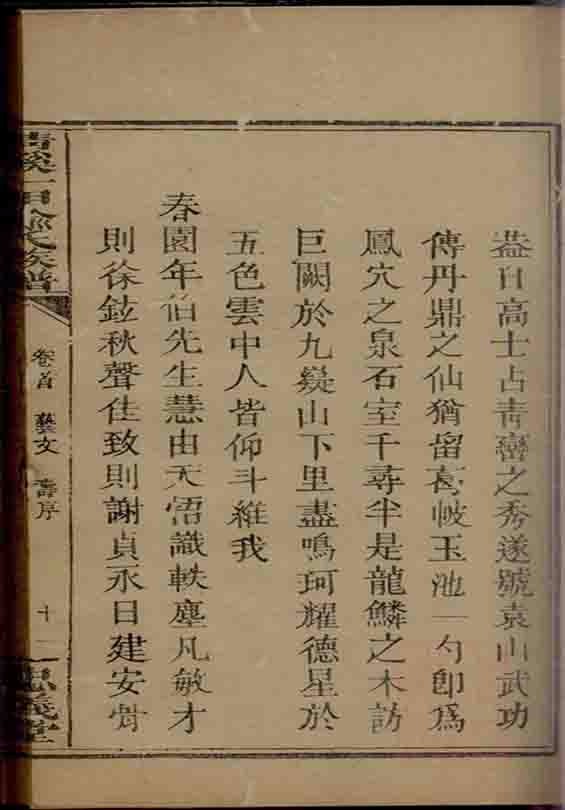 葢日高士占青巒之秀遂號袁山武功
傳丹鼎之仙猶留葛峻玉池一勺卽爲
鳳穴之泉石室千尋半是龍鱗之木訪
巨闕於九嶷山下里盡鳴珂耀德星於
五色雲中人皆仰斗維我
春園年伯先生慧由天悟識軼塵凡敏才
則徐鉉秋聲佳致則謝貞永日建安骨
卷首 藝文 壽序
十一